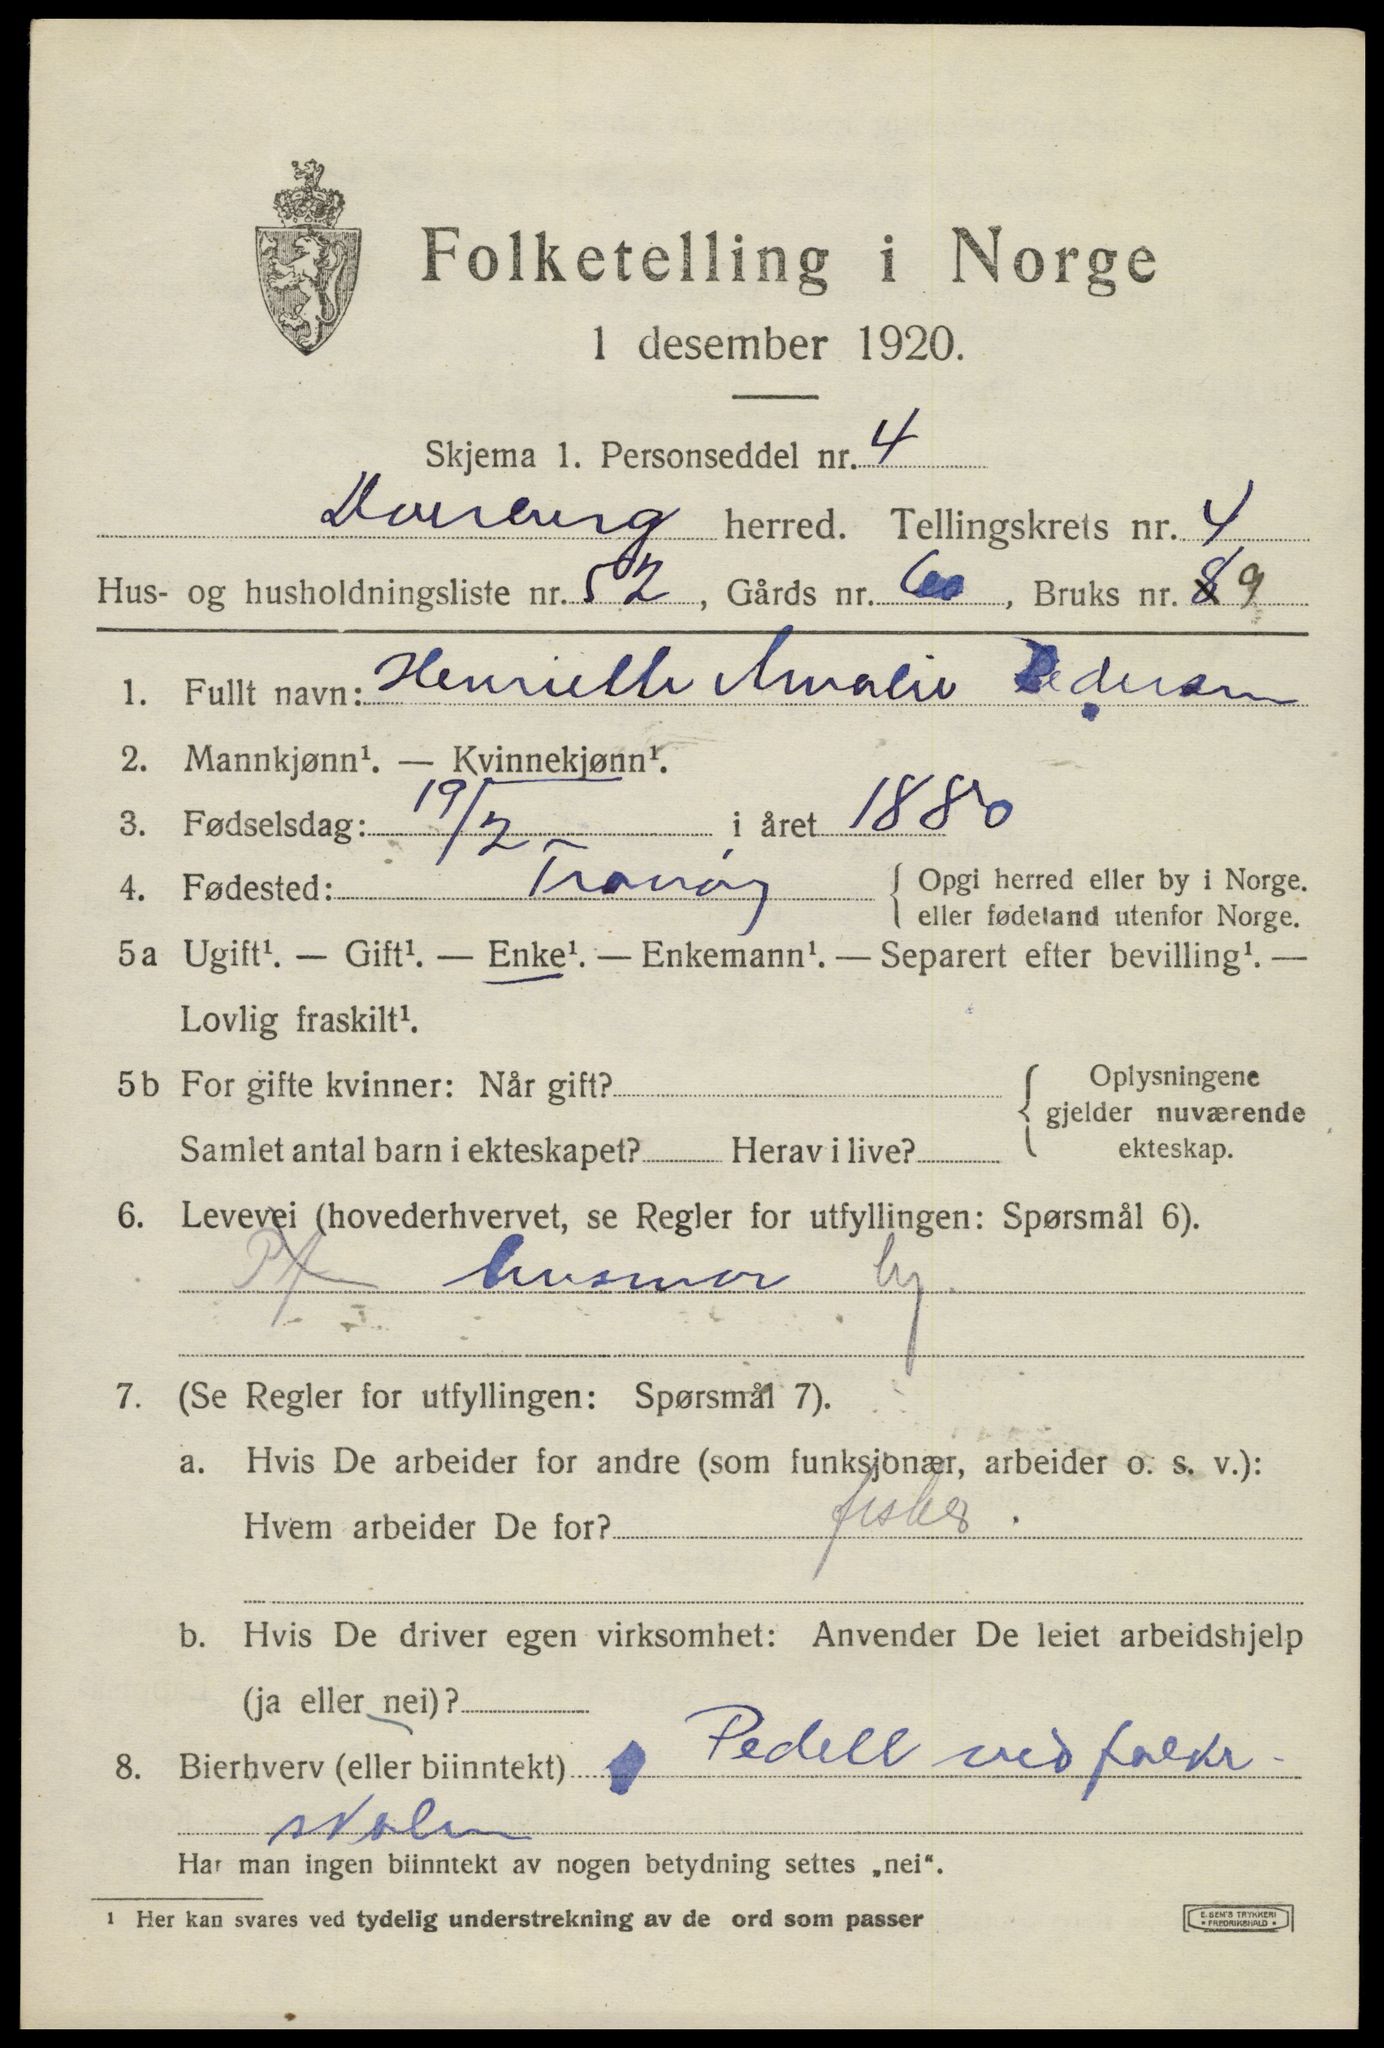 Folketelling i Norge
1 desember 1920.
Skjema 1. Personseddel nr. 4
herred. Tellingskrets nr. 4
Hus- og husholdningsliste nr. 52, Gårds nr. , Bruks nr. 9
1. Fullt navn: Henriette Amalie Pedersen
2. Mannkjønn¹. — Kvinnekjønn¹.
3. Fødselsdag: 19/2 i året 1880
4. Fødested: Tranøy { Opgi herred eller by i Norge.
eller fødeland utenfor Norge.
5a Ugift¹. — Gift¹. — Enke¹. — Enkemann¹. — Separert efter bevilling¹. —
Lovlig fraskilt¹.
5b For gifte kvinner: Når gift? { Oplysningene
gjelder nuværende
Samlet antal barn i ekteskapet? Herav i live? ekteskap.
6. Levevei (hovederhvervet, se Regler for utfyllingen: Spørsmål 6).
husmor
7. (Se Regler for utfyllingen: Spørsmål 7).
a. Hvis De arbeider for andre (som funksjonær, arbeider o. s. v.):
Hvem arbeider De for? fisker.
b. Hvis De driver egen virksomhet: Anvender De leiet arbeidshjelp
(ja eller nei)?
8. Bierhverv (eller biinntekt) Pedell ved folke-
skolen
Har man ingen biinntekt av nogen betydning settes „nei“.
¹ Her kan svares ved tydelig understrekning av de ord som passer
E. SEM'S TRYKKERI
• FREDRIKSHALD •